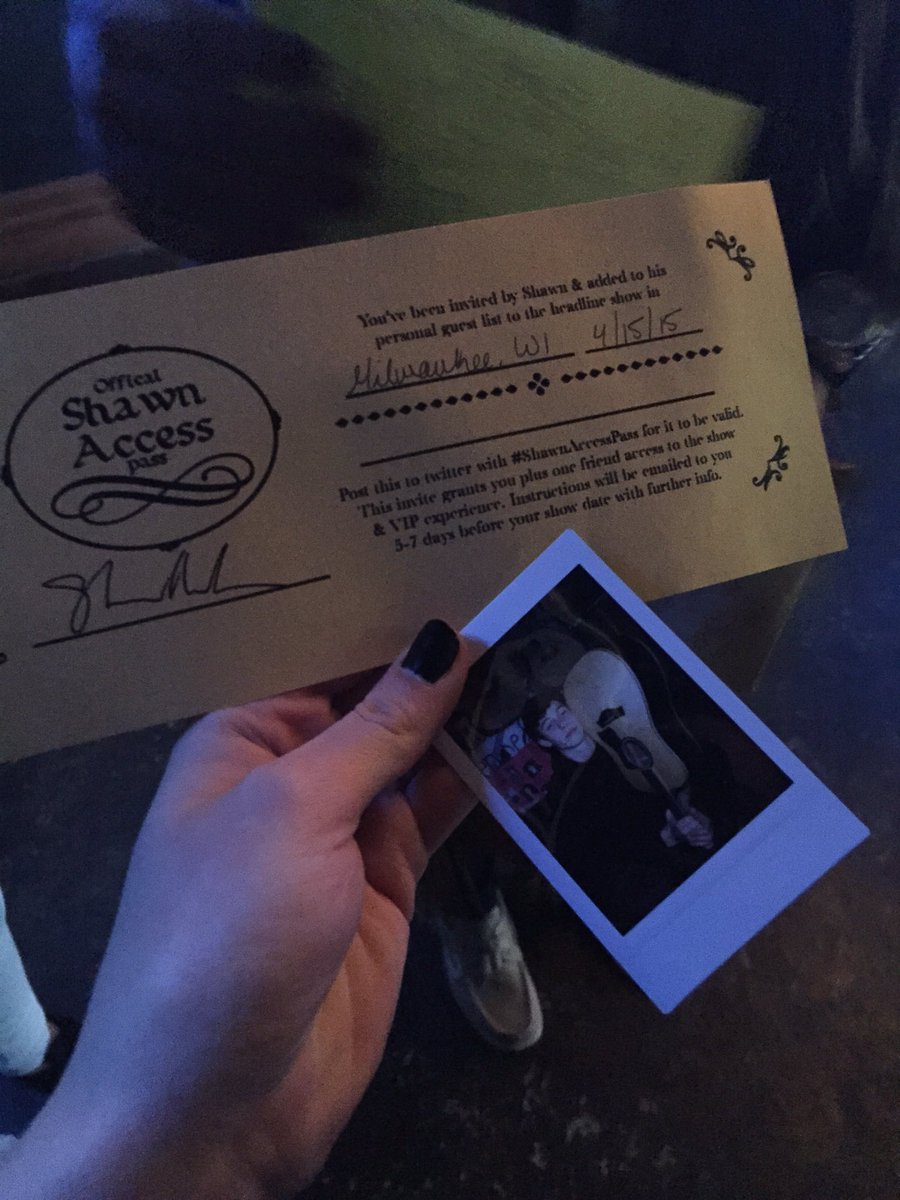 Offical
Shawn
Access
pass
You've been invited by Shawn & added to his
personal guest list to the headline show in
Milwaukee, WI 4/15/15
Post this to twitter with #ShawnAccessPass for it to be valid.
This invite grants you plus one friend access to the show
& VIP experience. Instructions will be emailed to you
5-7 days before your show date with further info.